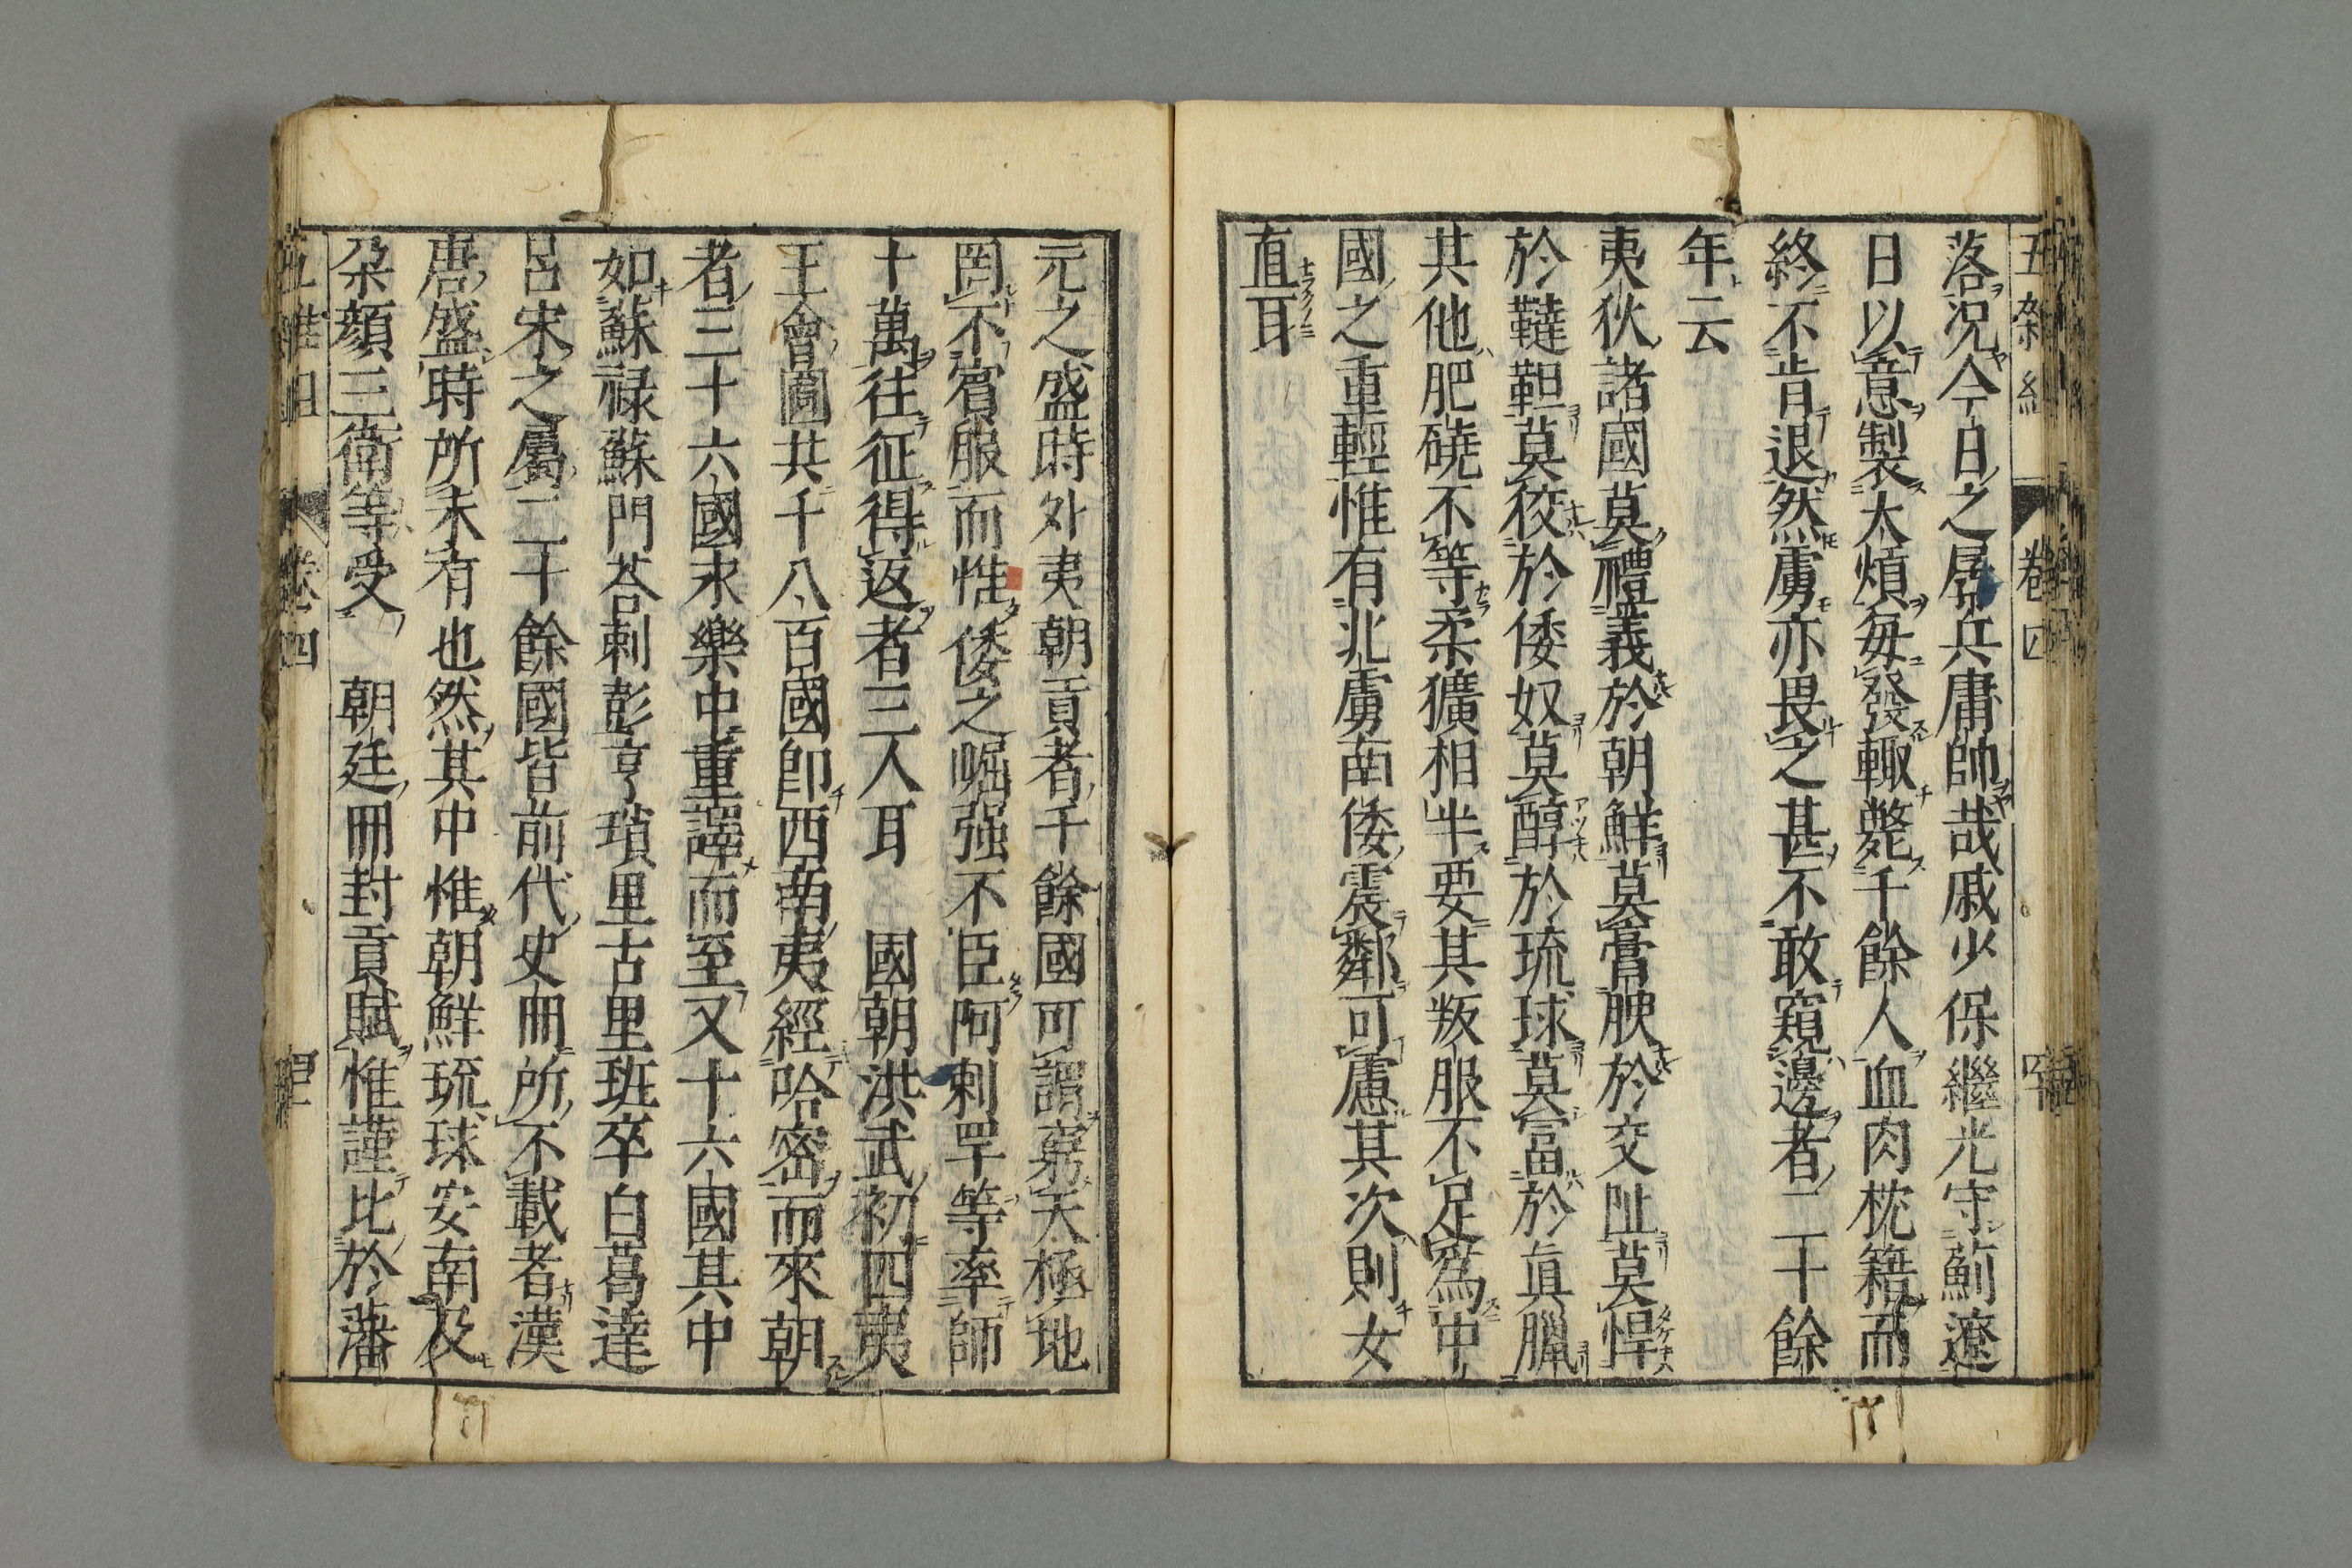 五雜組 卷四
落況今日之孱兵庸帥哉戚少保繼光守薊遼
日以意製太煩每發輙斃千餘人血肉枕籍而
終不肯退然虜亦畏之甚不敢窺邊者二十餘
年云
夷狄諸國莫禮義於朝鮮莫膏腴於交阯莫悍
於韃靼莫狡於倭奴莫醇於琉球莫富於眞臘
其他肥磽不等柔獷相半要其叛服不足爲中
國之重輕惟有北虜南倭震鄰可慮其次則女
直耳
元之盛時外夷朝貢者千餘國可謂窮天極地
罔不賓服而惟倭之崛强不臣阿剌罕等率師
十萬往征得返者三人耳 國朝洪武初四夷
王會圖共千八百國卽西南夷經哈密而來朝
者三十六國永樂中重譯而至又十六國其中
如蘇祿蘇門荅剌彭亨瑣里古里班卒白葛達
呂宋之屬二十餘國皆前代史冊所不載者漢
唐盛時所未有也然其中惟朝鮮琉球安南及
朶顏三衞等受 朝廷冊封貢賦惟謹比於藩
卷四